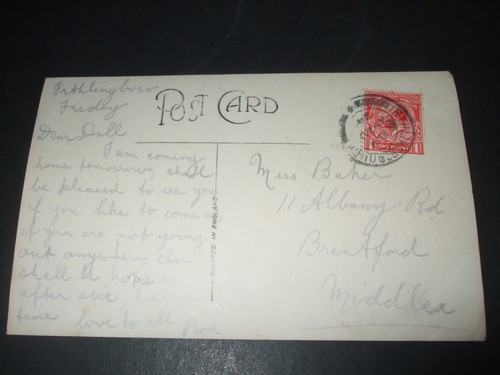 Irthlingboro
Friday
POST CARD
Dear Doll
I am coming
home tomorrow shall
be pleased to see you
if you like to come up
if you are not going
out anywhere else
shall be home
after six
time love to all
Miss Baker
11 Albany Rd
Brentford
Middlsex
PRINTED IN ENGLAND
ONE PENNY